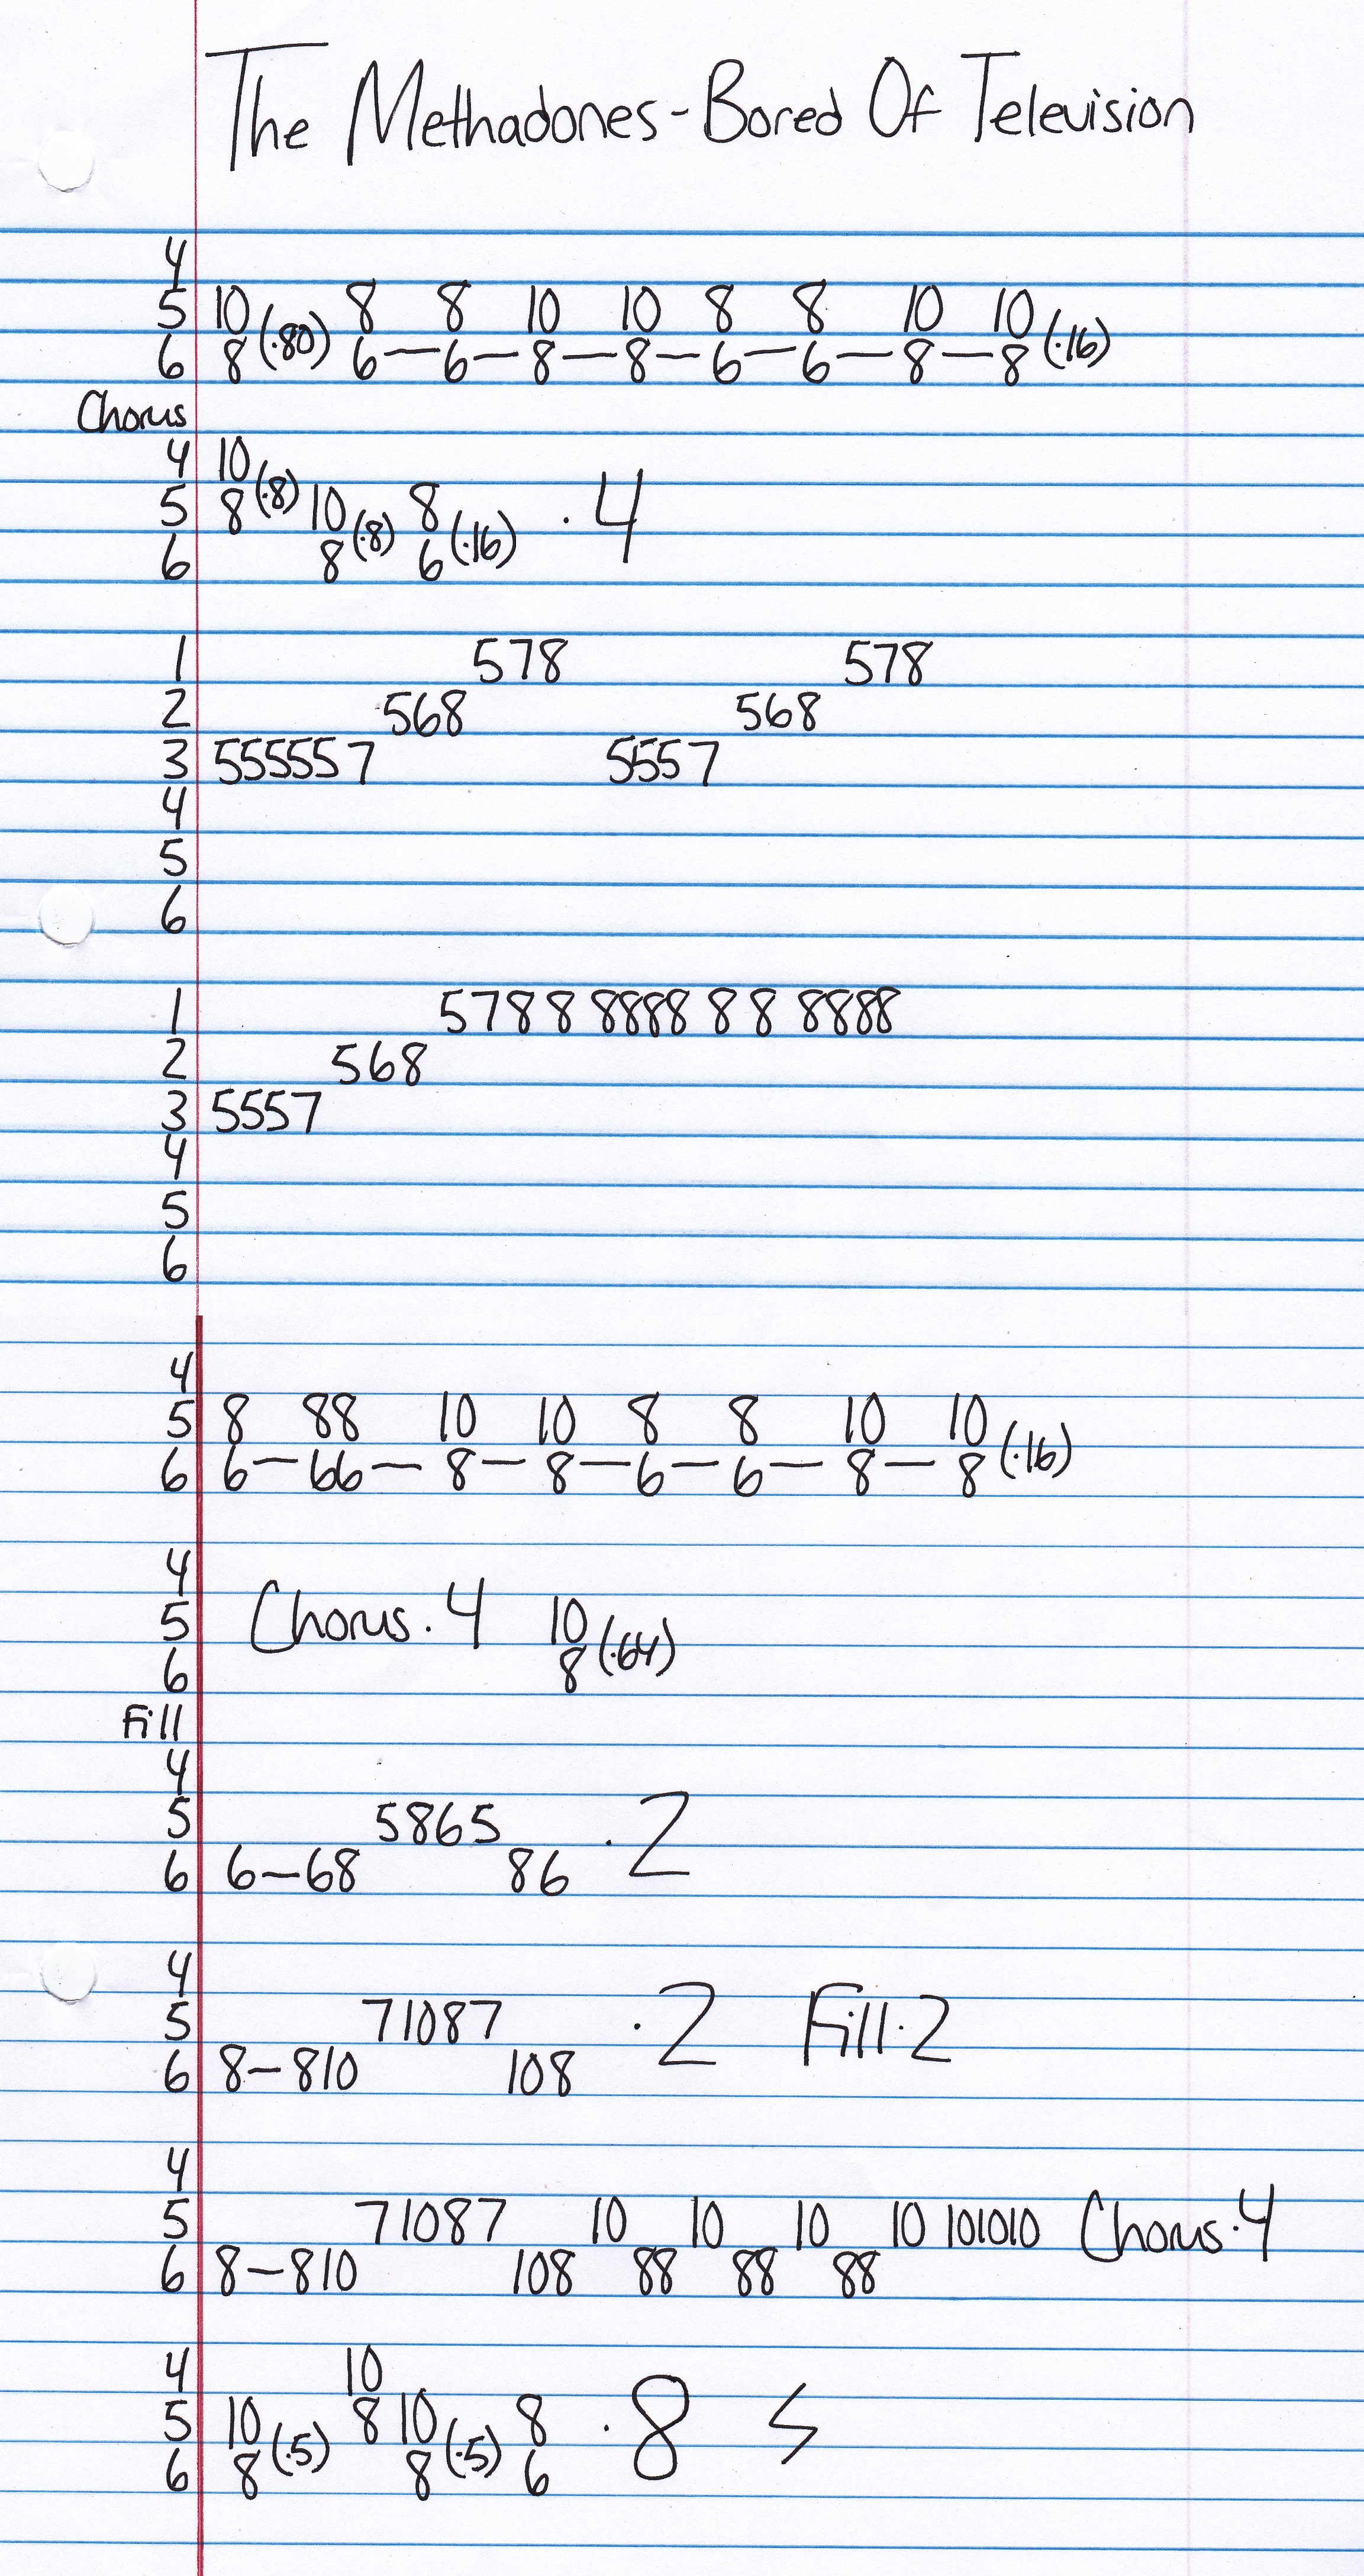 The Methadones-Bored Of Television
4
5 10 (·80) 8 8 10 10 8 8 10 10 (·16)
6 8 6—6—8—8—6—6—8—8
Chorus
4 10
5 8 (·8) 10 (·8) 8 (·16) ·4
6 8 6
1 578 578
2 568 568
3 555557 5557
4
5
6
1 5788 8888 8 8 8888
2 568
3 5557
4
5
6
4
5 8 88 10 10 8 8 10 10 (·16)
6 6—66—8—8—6—6—8—8
4
5 Chorus·4 10 (·64)
6 8
Fill
4
5 5865 ·2
6 6—68 86
4
5 71087 ·2 Fill·2
6 8—810 108
4
5 71087 10 10 10 10 101010 Chorus·4
6 8—810 108 88 88 88
4 10
5 10 (·5) 8 10 (·5) 8 ·8
6 8 8 6